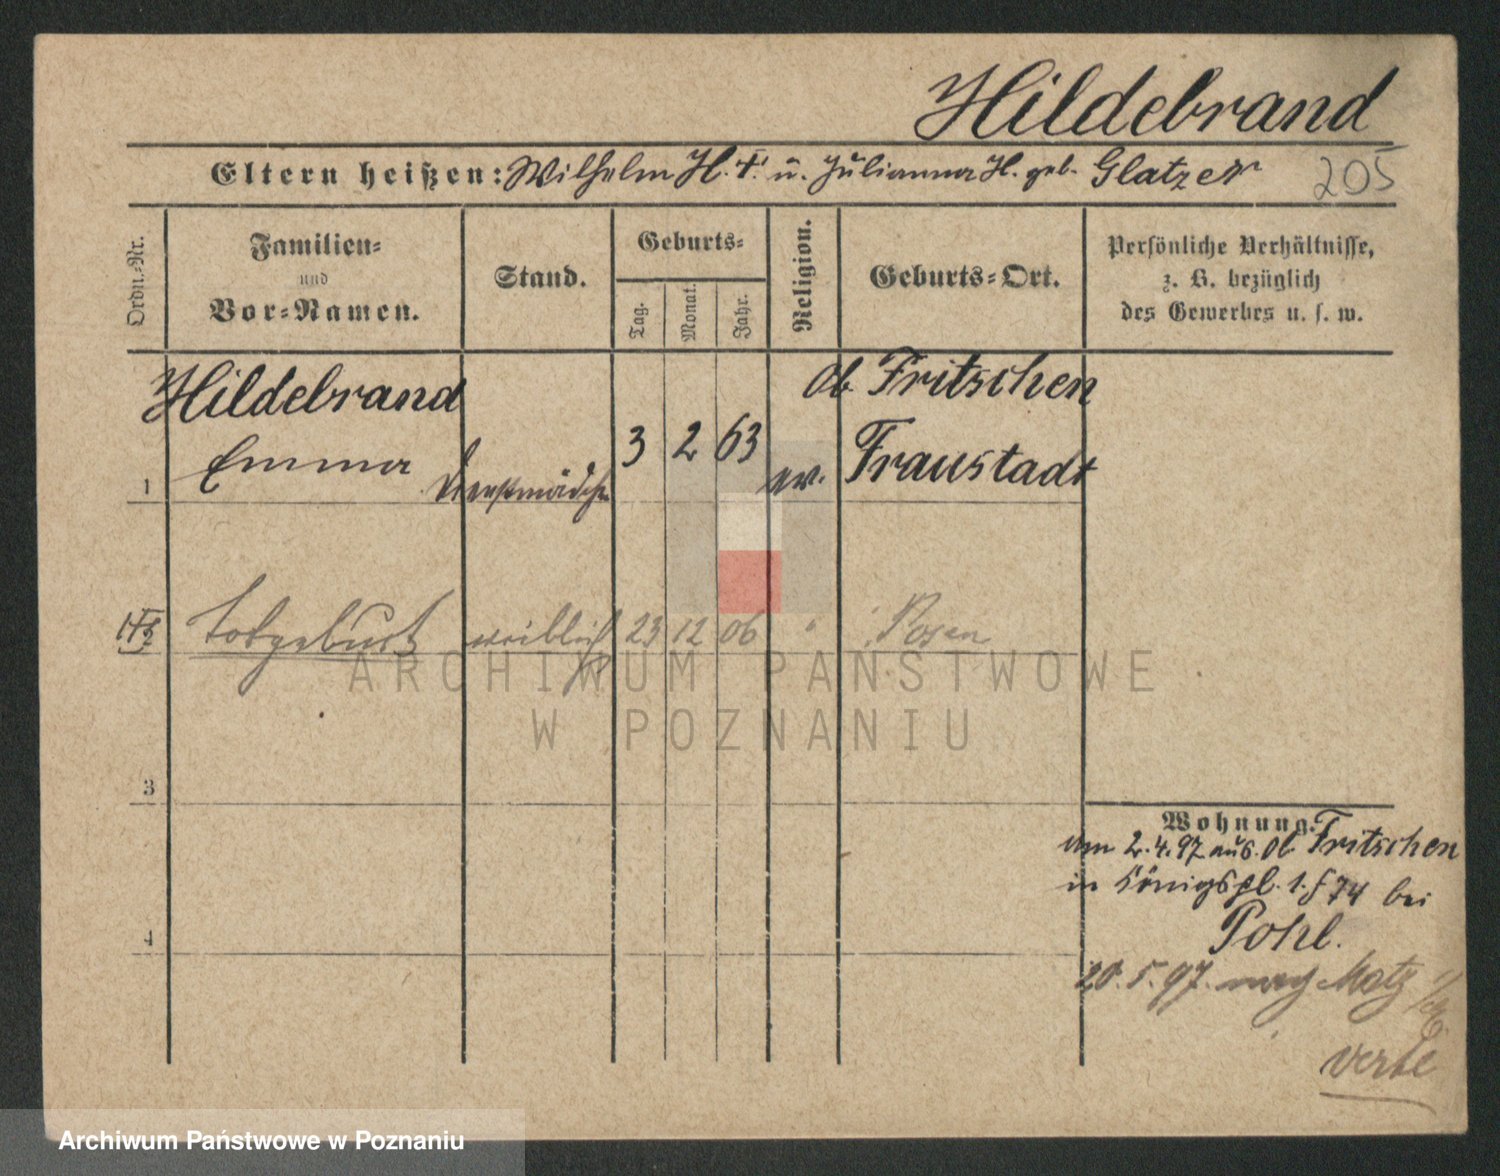 Hildebrand
Eltern heißen: Wilhelm H. †. u. Julianna H. geb. Glatzer
205
Ordn.-Nr.
Familien-
und
Vor-Namen.
Stand.
Geburts-
Tag.
Monat.
Jahr.
Religion.
Geburts-Ort.
Persönliche Verhältnisse,
z. B. bezüglich
des Gewerbes u. s. w.
Hildebrand
Ob Fritschen
1 Emma Dienstmädchen 3 2 63 ev. Fraustadt
Todgeburt weiblich 23 12 06 " Posen
ARCHIWUM PAŃSTWOWE
W POZNANIU
3
Wohnung.
am 2.4.97 aus Ob Fritschen
in Königspl. 1. 74 bei
4
Pohl.
20.5.97. nach Matz
verte
Archiwum Państwowe w Poznaniu